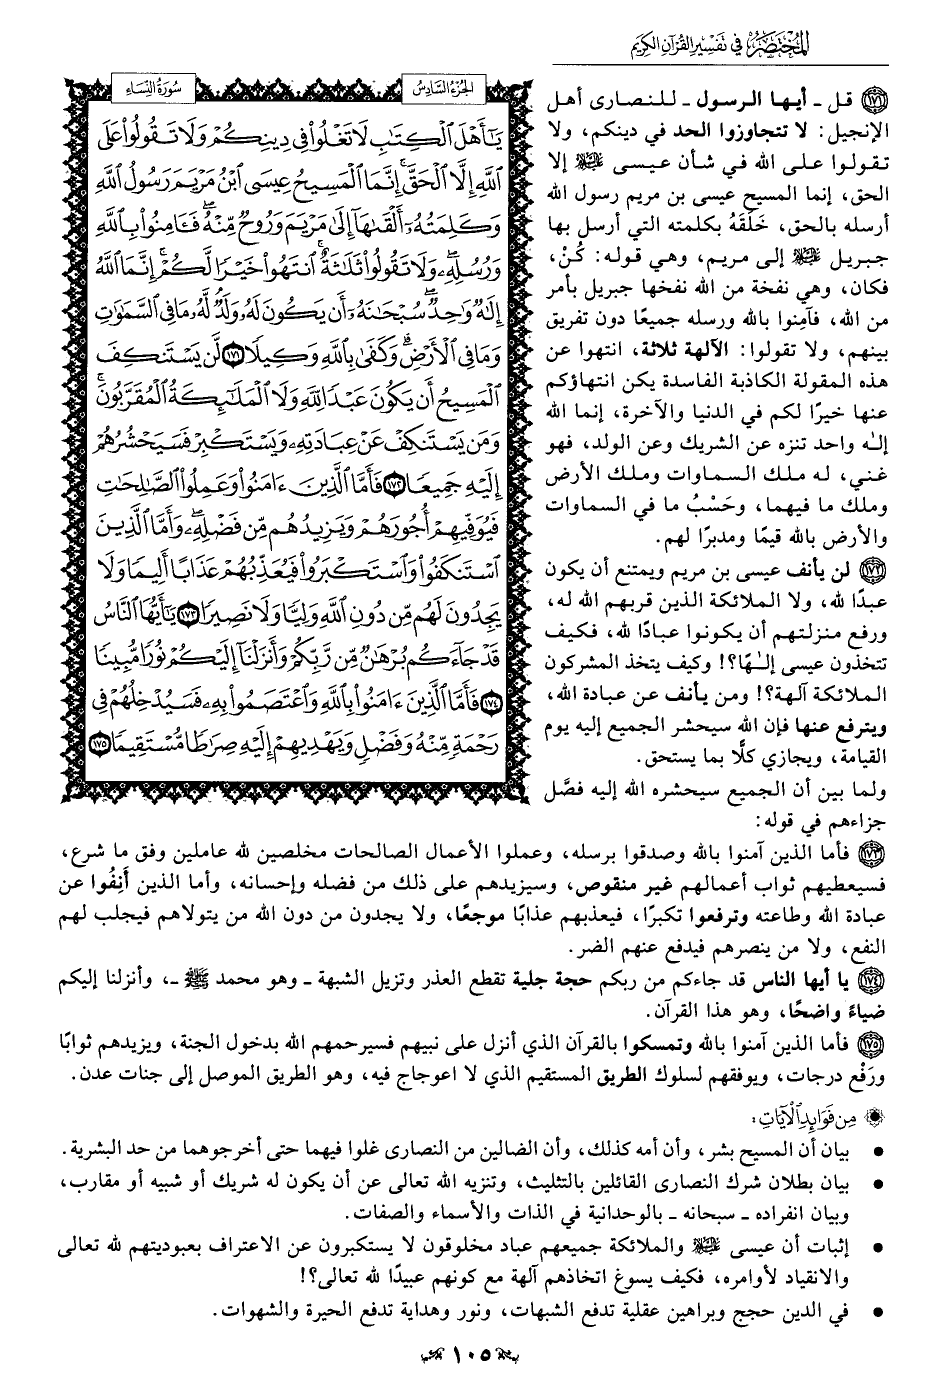 المختصر في تفسير القرآن الكريم
الجزء السادس
سورة النساء
يَٰٓأَهۡلَ ٱلۡكِتَٰبِ لَا تَغۡلُواْ فِي دِينِكُمۡ وَلَا تَقُولُواْ عَلَى
ٱللَّهِ إِلَّا ٱلۡحَقَّۚ إِنَّمَا ٱلۡمَسِيحُ عِيسَى ٱبۡنُ مَرۡيَمَ رَسُولُ ٱللَّهِ
وَكَلِمَتُهُۥٓ أَلۡقَىٰهَآ إِلَىٰ مَرۡيَمَ وَرُوحٞ مِّنۡهُۖ فَـَٔامِنُواْ بِٱللَّهِ
وَرُسُلِهِۦۖ وَلَا تَقُولُواْ ثَلَٰثَةٌۚ ٱنتَهُواْ خَيۡرٗا لَّكُمۡۚ إِنَّمَا ٱللَّهُ
إِلَٰهٞ وَٰحِدٞۖ سُبۡحَٰنَهُۥٓ أَن يَكُونَ لَهُۥ وَلَدٞۘ لَّهُۥ مَا فِي ٱلسَّمَٰوَٰتِ
وَمَا فِي ٱلۡأَرۡضِۗ وَكَفَىٰ بِٱللَّهِ وَكِيلٗا ١٧١ لَّن يَسۡتَنكِفَ
ٱلۡمَسِيحُ أَن يَكُونَ عَبۡدٗا لِّلَّهِ وَلَا ٱلۡمَلَٰٓئِكَةُ ٱلۡمُقَرَّبُونَۚ
وَمَن يَسۡتَنكِفۡ عَنۡ عِبَادَتِهِۦ وَيَسۡتَكۡبِرۡ فَسَيَحۡشُرُهُمۡ
إِلَيۡهِ جَمِيعٗا ١٧٢ فَأَمَّا ٱلَّذِينَ ءَامَنُواْ وَعَمِلُواْ ٱلصَّٰلِحَٰتِ
فَيُوَفِّيهِمۡ أُجُورَهُمۡ وَيَزِيدُهُم مِّن فَضۡلِهِۦۖ وَأَمَّا ٱلَّذِينَ
ٱسۡتَنكَفُواْ وَٱسۡتَكۡبَرُواْ فَيُعَذِّبُهُمۡ عَذَابًا أَلِيمٗا وَلَا
يَجِدُونَ لَهُم مِّن دُونِ ٱللَّهِ وَلِيّٗا وَلَا نَصِيرٗا ١٧٣ يَٰٓأَيُّهَا ٱلنَّاسُ
قَدۡ جَآءَكُم بُرۡهَٰنٞ مِّن رَّبِّكُمۡ وَأَنزَلۡنَآ إِلَيۡكُمۡ نُورٗا مُّبِينٗا
١٧٤ فَأَمَّا ٱلَّذِينَ ءَامَنُواْ بِٱللَّهِ وَٱعۡتَصَمُواْ بِهِۦ فَسَيُدۡخِلُهُمۡ فِي
رَحۡمَةٖ مِّنۡهُ وَفَضۡلٖ وَيَهۡدِيهِمۡ إِلَيۡهِ صِرَٰطٗا مُّسۡتَقِيمٗا ١٧٥
١٧١ قل - أيها الرسول - للنصارى أهل
الإنجيل: لا تتجاوزوا الحد في دينكم، ولا
تقولوا على الله في شأن عيسى عليه السلام إلا
الحق، إنما المسيح عيسى بن مريم رسول الله
أرسله بالحق، خَلَقَهُ بكلمته التي أرسل بها
جبريل عليه السلام إلى مريم، وهي قوله: كُنْ،
فكان، وهي نفخة من الله نفخها جبريل بأمر
من الله، فآمِنوا بالله ورسله جميعًا دون تفريق
بينهم، ولا تقولوا: الآلهة ثلاثة، انتهوا عن
هذه المقولة الكاذبة الفاسدة يكن انتهاؤكم
عنها خيرًا لكم في الدنيا والآخرة، إنما الله
إلٰه واحد تنزه عن الشريك وعن الولد، فهو
غني، له ملك السماوات وملك الأرض
وملك ما فيهما، وحَسْبُ ما في السماوات
والأرض بالله قيمًا ومدبرًا لهم.
١٧٢ لن يأنف عيسى بن مريم ويمتنع أن يكون
عبدًا لله، ولا الملائكة الذين قربهم الله له،
ورفع منزلتهم أن يكونوا عبادًا لله، فكيف
تتخذون عيسى إلٰهًا؟! وكيف يتخذ المشركون
الملائكة آلهة؟! ومن يأنف عن عبادة الله،
ويترفع عنها فإن الله سيحشر الجميع إليه يوم
القيامة، ويجازي كلًّا بما يستحق.
ولما بين أن الجميع سيحشره الله إليه فصَّل
جزاءهم في قوله:
١٧٣ فأما الذين آمنوا بالله وصدقوا برسله، وعملوا الأعمال الصالحات مخلصين لله عاملين وفق ما شرع،
فسيعطيهم ثواب أعمالهم غير منقوص، وسيزيدهم على ذلك من فضله وإحسانه، وأما الذين أَنِفُوا عن
عبادة الله وطاعته وترفعوا تكبرًا، فيعذبهم عذابًا موجعًا، ولا يجدون من دون الله من يتولاهم فيجلب لهم
النفع، ولا من ينصرهم فيدفع عنهم الضر.
١٧٤ يا أيها الناس قد جاءكم من ربكم حجة جلية تقطع العذر وتزيل الشبهة - وهو محمد ﷺ -، وأنزلنا إليكم
ضياءً واضحًا، وهو هذا القرآن.
١٧٥ فأما الذين آمنوا بالله وتمسكوا بالقرآن الذي أنزل على نبيهم فسيرحمهم الله بدخول الجنة، ويزيدهم ثوابًا
ورَفْع درجات، ويوفقهم لسلوك الطريق المستقيم الذي لا اعوجاج فيه، وهو الطريق الموصل إلى جنات عدن.
من فوائد الآيات:
• بيان أن المسيح بشر، وأن أمه كذلك، وأن الضالين من النصارى غلوا فيهما حتى أخرجوهما من حد البشرية.
• بيان بطلان شرك النصارى القائلين بالتثليث، وتنزيه الله تعالى عن أن يكون له شريك أو شبيه أو مقارب،
وبيان انفراده - سبحانه - بالوحدانية في الذات والأسماء والصفات.
• إثبات أن عيسى عليه السلام والملائكة جميعهم عباد مخلوقون لا يستكبرون عن الاعتراف بعبوديتهم لله تعالى
والانقياد لأوامره، فكيف يسوغ اتخاذهم آلهة مع كونهم عبيدًا لله تعالى؟!
• في الدين حجج وبراهين عقلية تدفع الشبهات، ونور وهداية تدفع الحيرة والشهوات.
١٠٥